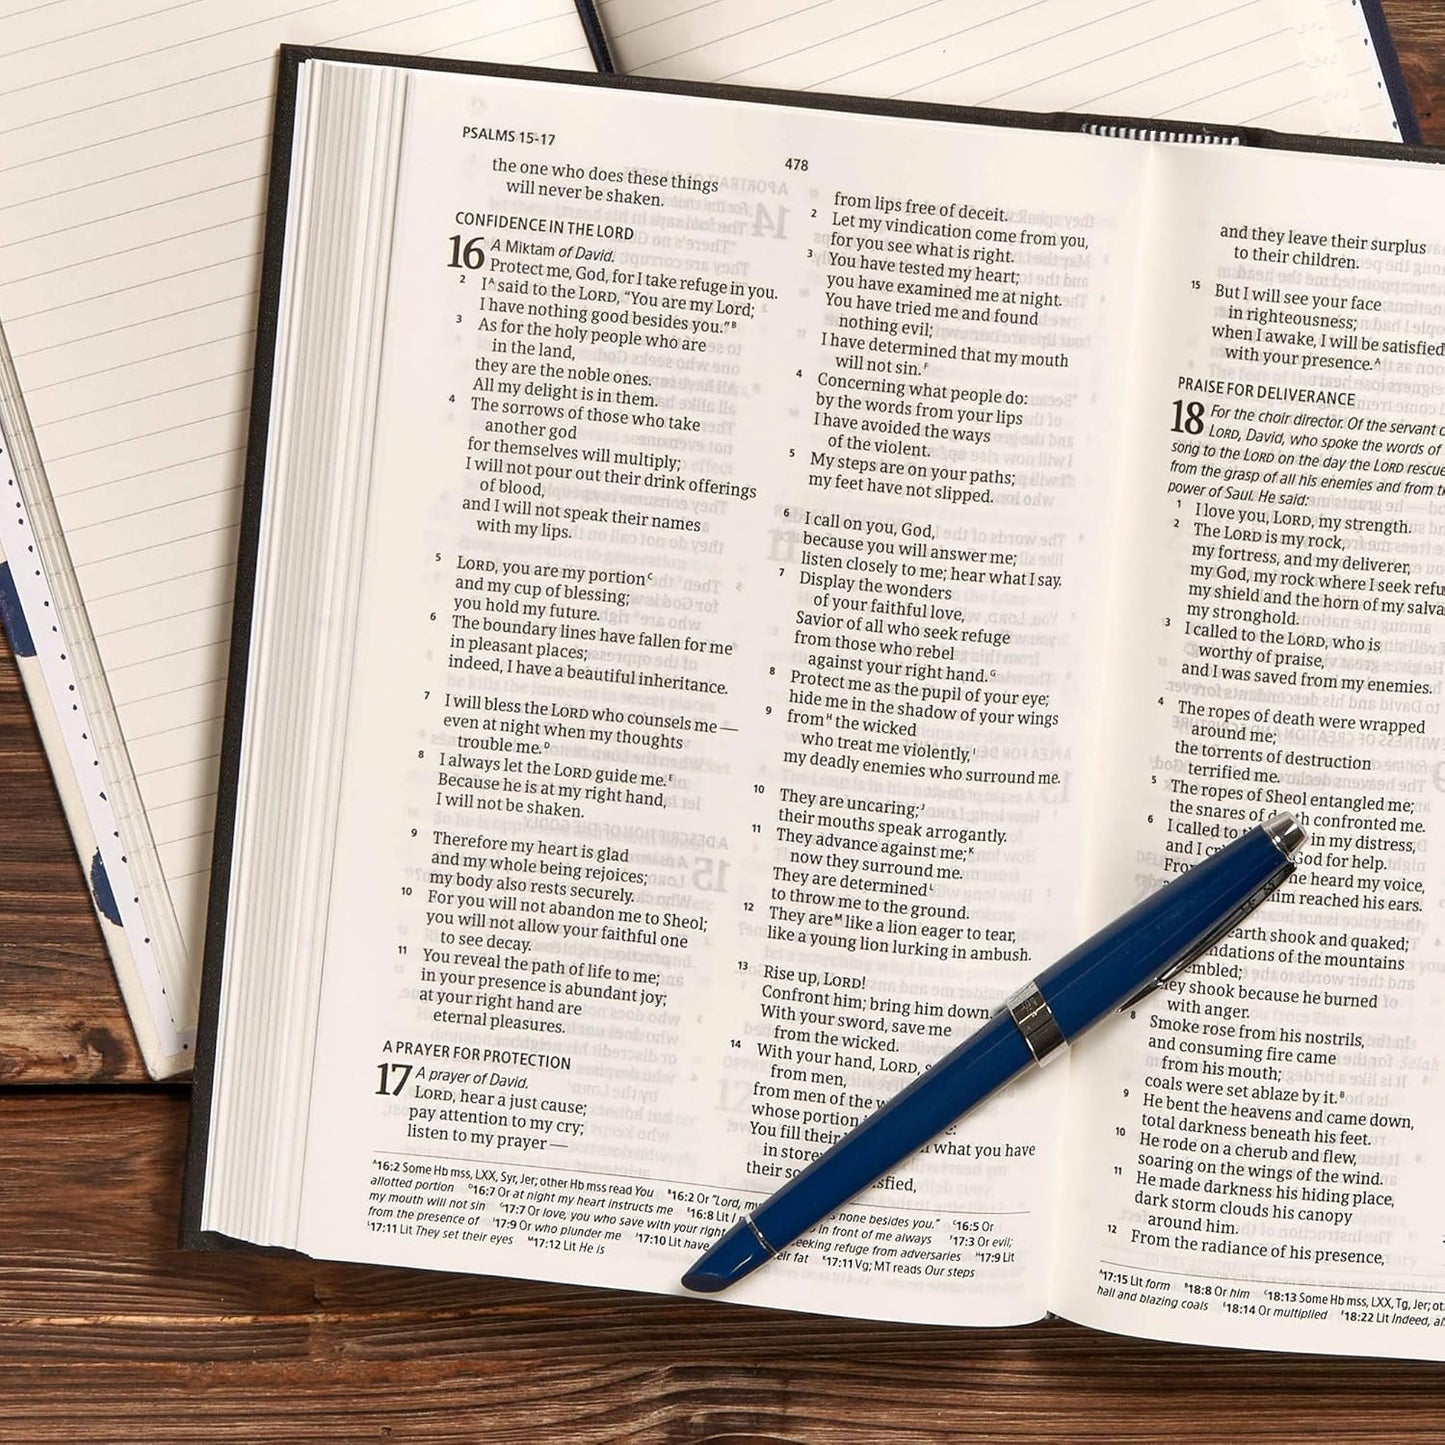 PSALMS 15–17
478
the one who does these things
will never be shaken.
CONFIDENCE IN THE LORD
16 A Miktam of David.
Protect me, God, for I take refuge in you.
2 I^A said to the LORD, “You are my Lord;
I have nothing good besides you.”^B
3 As for the holy people who are
in the land,
they are the noble ones.
All my delight is in them.
4 The sorrows of those who take
another god
for themselves will multiply;
I will not pour out their drink offerings
of blood,
and I will not speak their names
with my lips.
5 LORD, you are my portion^C
and my cup of blessing;
you hold my future.
6 The boundary lines have fallen for me
in pleasant places;
indeed, I have a beautiful inheritance.
7 I will bless the LORD who counsels me —
even at night when my thoughts
trouble me.^D
8 I always let the LORD guide me.^E
Because he is at my right hand,
I will not be shaken.
9 Therefore my heart is glad
and my whole being rejoices;
my body also rests securely.
10 For you will not abandon me to Sheol;
you will not allow your faithful one
to see decay.
11 You reveal the path of life to me;
in your presence is abundant joy;
at your right hand are
eternal pleasures.
A PRAYER FOR PROTECTION
17 A prayer of David.
LORD, hear a just cause;
pay attention to my cry;
listen to my prayer —
from lips free of deceit.
2 Let my vindication come from you,
for you see what is right.
3 You have tested my heart;
you have examined me at night.
You have tried me and found
nothing evil;
I have determined that my mouth
will not sin.^F
4 Concerning what people do:
by the words from your lips
I have avoided the ways
of the violent.
5 My steps are on your paths;
my feet have not slipped.
6 I call on you, God,
because you will answer me;
listen closely to me; hear what I say.
7 Display the wonders
of your faithful love,
Savior of all who seek refuge
from those who rebel
against your right hand.^G
8 Protect me as the pupil of your eye;
hide me in the shadow of your wings
9 from^H the wicked
who treat me violently,^I
my deadly enemies who surround me.
10 They are uncaring;^J
their mouths speak arrogantly.
11 They advance against me;^K
now they surround me.
They are determined^L
to throw me to the ground.
12 They are^M like a lion eager to tear,
like a young lion lurking in ambush.
13 Rise up, LORD!
Confront him; bring him down.
With your sword, save me
from the wicked.
14 With your hand, LORD,
from men,
from men of the
whose portion
You fill their what you have
in store
their
^A16:2 Some Hb mss, LXX, Syr, Jer; other Hb mss read You ^B16:2 Or “Lord, none besides you.” ^C16:5 Or
allotted portion ^D16:7 Or at night my heart instructs me ^E16:8 Lit in front of me always ^F17:3 Or evil;
my mouth will not sin ^G17:7 Or love, you who save with your right seeking refuge from adversaries ^H17:9 Lit
from the presence of ^I17:9 Or who plunder me ^J17:10 Lit have fat ^K17:11 Vg; MT reads Our steps
^L17:11 Lit They set their eyes ^M17:12 Lit He is
and they leave their surplus
to their children.
15 But I will see your face
in righteousness;
when I awake, I will be satisfied
with your presence.^A
PRAISE FOR DELIVERANCE
18 For the choir director. Of the servant
LORD, David, who spoke the words of
song to the LORD on the day the LORD
from the grasp of all his enemies and from
power of Saul. He said:
1 I love you, LORD, my strength.
2 The LORD is my rock,
my fortress, and my deliverer,
my God, my rock where I seek
my shield and the horn of my
my stronghold.
3 I called to the LORD, who is
worthy of praise,
and I was saved from my enemies.
4 The ropes of death were wrapped
around me;
the torrents of destruction
terrified me.
5 The ropes of Sheol entangled me;
the snares of confronted me.
6 I called to in my distress,
and I God for help.
he heard my voice,
him reached his ears.
earth shook and quaked;
of the mountains
they shook because he burned
with anger.
8 Smoke rose from his nostrils,
and consuming fire came
from his mouth;
coals were set ablaze by it.^B
9 He bent the heavens and came down,
total darkness beneath his feet.
10 He rode on a cherub and flew,
soaring on the wings of the wind.
11 He made darkness his hiding place,
dark storm clouds his canopy
around him.
12 From the radiance of his presence,
^A17:15 Lit form ^B18:8 Or him ^C18:13 Some Hb mss, LXX, Tg, Jer;
hail and blazing coals ^E18:14 Or multiplied ^F18:22 Lit Indeed,